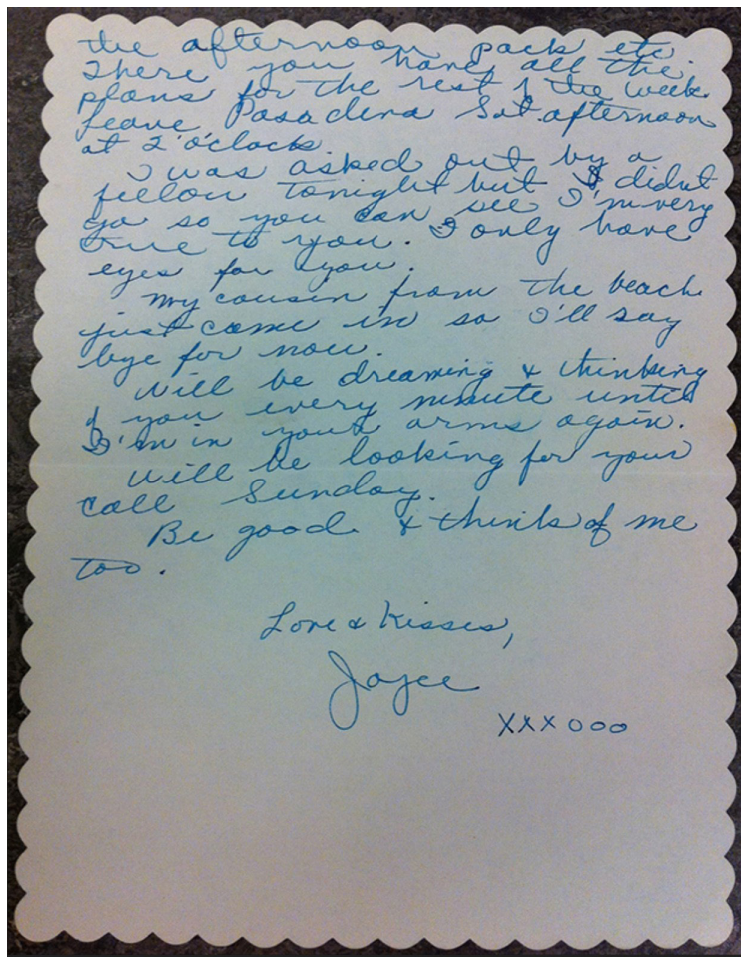 the afternoon pack etc.
There you have all the
plans for the rest of the week.
Leave Pasadena Sat. afternoon
at 2 o'clock.
I was asked out by a
fellow tonight but I didn't
go so you can see I'm very
true to you. I only have
eyes for you.
My cousin from the beach
just came in so I'll say
bye for now.
Will be dreaming & thinking
of you every minute until
I'm in your arms again.
Will be looking for your
call Sunday.
Be good & think of me
too.
Love & Kisses,
Joyce
XXX000